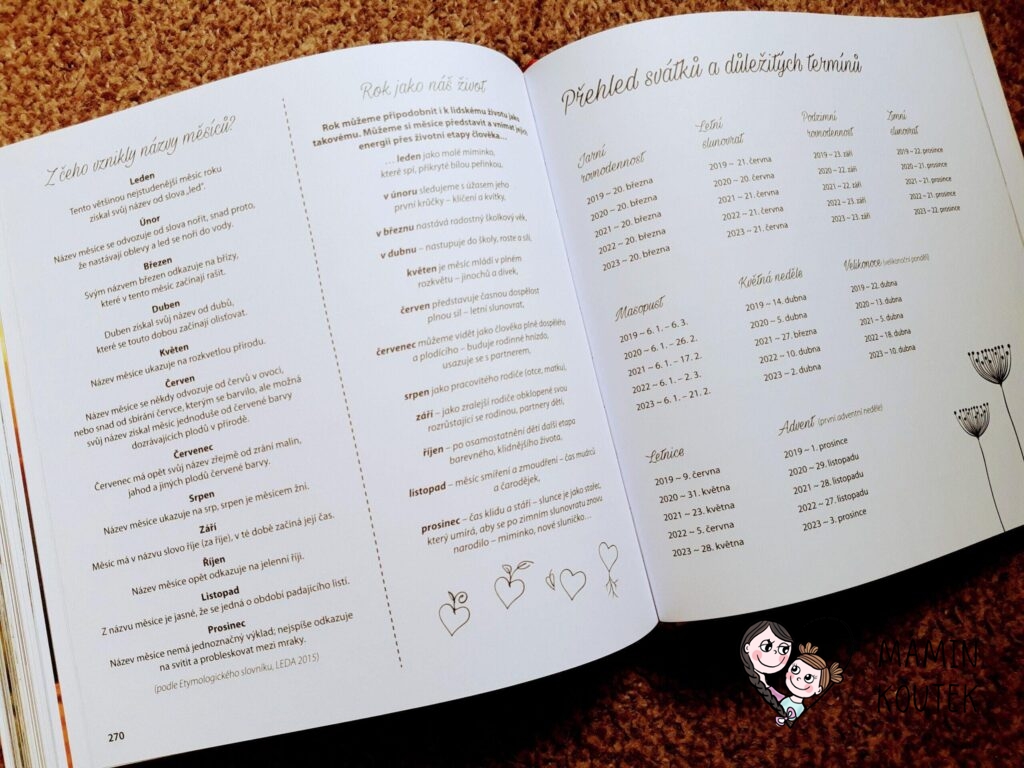 Z čeho vznikly názvy měsíců?
Leden
Tento většinou nejstudenější měsíc roku
získal svůj název od slova „led“.
Únor
Název měsíce se odvozuje od slova nořit, snad proto,
že nastávají oblevy a led se noří do vody.
Březen
Svým názvem březen odkazuje na břízy,
které v tento měsíc začínají rašit.
Duben
Duben získal svůj název od dubů,
které se touto dobou začínají olisťovat.
Květen
Název měsíce ukazuje na rozkvetlou přírodu.
Červen
Název měsíce se někdy odvozuje od červů v ovoci,
nebo snad od sbírání červce, kterým se barvilo, ale možná
svůj název získal měsíc jednoduše od červené barvy
dozrávajících plodů v přírodě.
Červenec
Červenec má opět svůj název zřejmě od zrání malin,
jahod a jiných plodů červené barvy.
Srpen
Název měsíce ukazuje na srp, srpen je měsícem žní.
Září
Měsíc má v názvu slovo říje (za říje), v té době začíná její čas.
Říjen
Název měsíce opět odkazuje na jelenní říji.
Listopad
Z názvu měsíce je jasné, že se jedná o období padajícího listí.
Prosinec
Název měsíce nemá jednoznačný výklad; nejspíše odkazuje
na svítit a probleskovat mezi mraky.
(podle Etymologického slovníku, LEDA 2015)
270
Rok jako náš život
Rok můžeme připodobnit i k lidskému životu jako
takovému. Můžeme si měsíce představit a vnímat jejich
energii přes životní etapy člověka…
…leden jako molé miminko,
které spí, přikryté bílou peřinkou,
v únoru sledujeme s úžasem jeho
první krůčky – klíčení a kvítky,
v březnu nastává radostný školkový věk,
v dubnu – nastupuje do školy, roste a sílí,
květen je měsíc mládí v plném
rozkvětu – jinochů a dívek,
červen představuje časnou dospělost
plnou sil – letní slunovrat,
červenec můžeme vidět jako člověka plně dospělého
a plodícího – buduje rodinné hnízdo,
usazuje se s partnerem,
srpen jako pracovitého rodiče (otce, matku),
září – jako zralejší rodiče obklopené svou
rozrůstající se rodinou, partnery dětí,
říjen – po osamostatnění dětí další etapa
barevného, klidnějšího života,
listopad – měsíc smíření a zmoudření – čas mudrců
a čarodějek,
prosinec – čas klidu a stáří – slunce je jako stařec,
který umírá, aby se po zimním slunovratu znovu
narodilo – miminko, nové sluníčko…
Přehled svátků a důležitých termínů
Jarní
rovnodennost
2019 – 20. března
2020 – 20. března
2021 – 20. března
2022 – 20. března
2023 – 20. března
Letní
slunovrat
2019 – 21. června
2020 – 20. června
2021 – 21. června
2022 – 21. června
2023 – 21. června
Podzimní
rovnodennost
2019 – 23. září
2020 – 22. září
2021 – 22. září
2022 – 23. září
2023 – 23. září
Zimní
slunovrat
2019 – 22. prosince
2020 – 21. prosince
2021 – 21. prosince
2022 – 21. prosince
2023 – 22. prosince
Masopust
2019 – 6. 1. – 6. 3.
2020 – 6. 1. – 26. 2.
2021 – 6. 1. – 17. 2.
2022 – 6. 1. – 2. 3.
2023 – 6. 1. – 21. 2.
Květná neděle
2019 – 14. dubna
2020 – 5. dubna
2021 – 27. března
2022 – 10. dubna
2023 – 2. dubna
Velikonoce (velikonoční pondělí)
2019 – 22. dubna
2020 – 13. dubna
2021 – 5. dubna
2022 – 18. dubna
2023 – 10. dubna
Letnice
2019 – 9. června
2020 – 31. května
2021 – 23. května
2022 – 5. června
2023 – 28. května
Advent (první adventní neděle)
2019 – 1. prosince
2020 – 29. listopadu
2021 – 28. listopadu
2022 – 27. listopadu
2023 – 3. prosince
MAMIN
KOUTEK